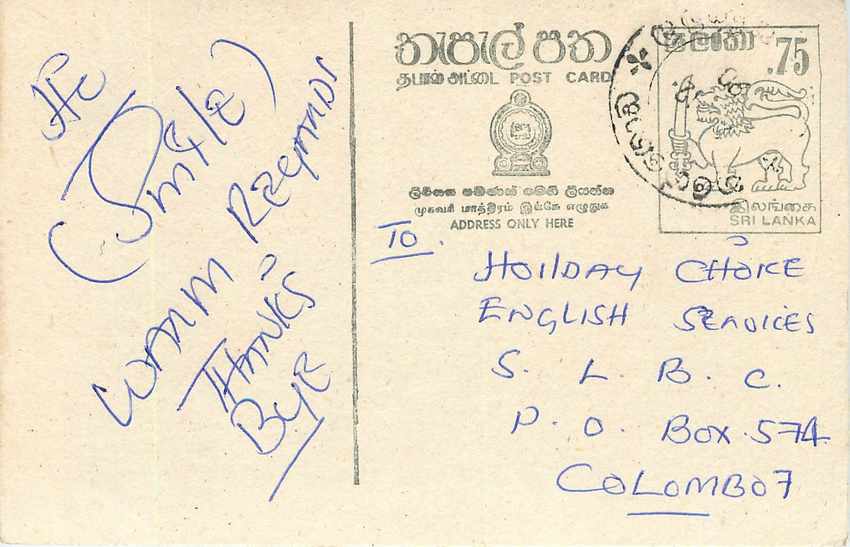 (Smile)
WARM REGARDS
THANKS
BYE
තැපැල් පත
தபால் அட்டை POST CARD
ලිපිනය පමණක් මෙහි ලියන්න
முகவரி மாத்திரம் இங்கே எழுதுக
ADDRESS ONLY HERE
ශ්‍රී ලංකා
.75
இலங்கை
SRI LANKA
TO.
HOILDAY CHOICE
ENGLISH SERVICES
S. L. B. C.
P. O. BOX. 574
COLOMBO 7